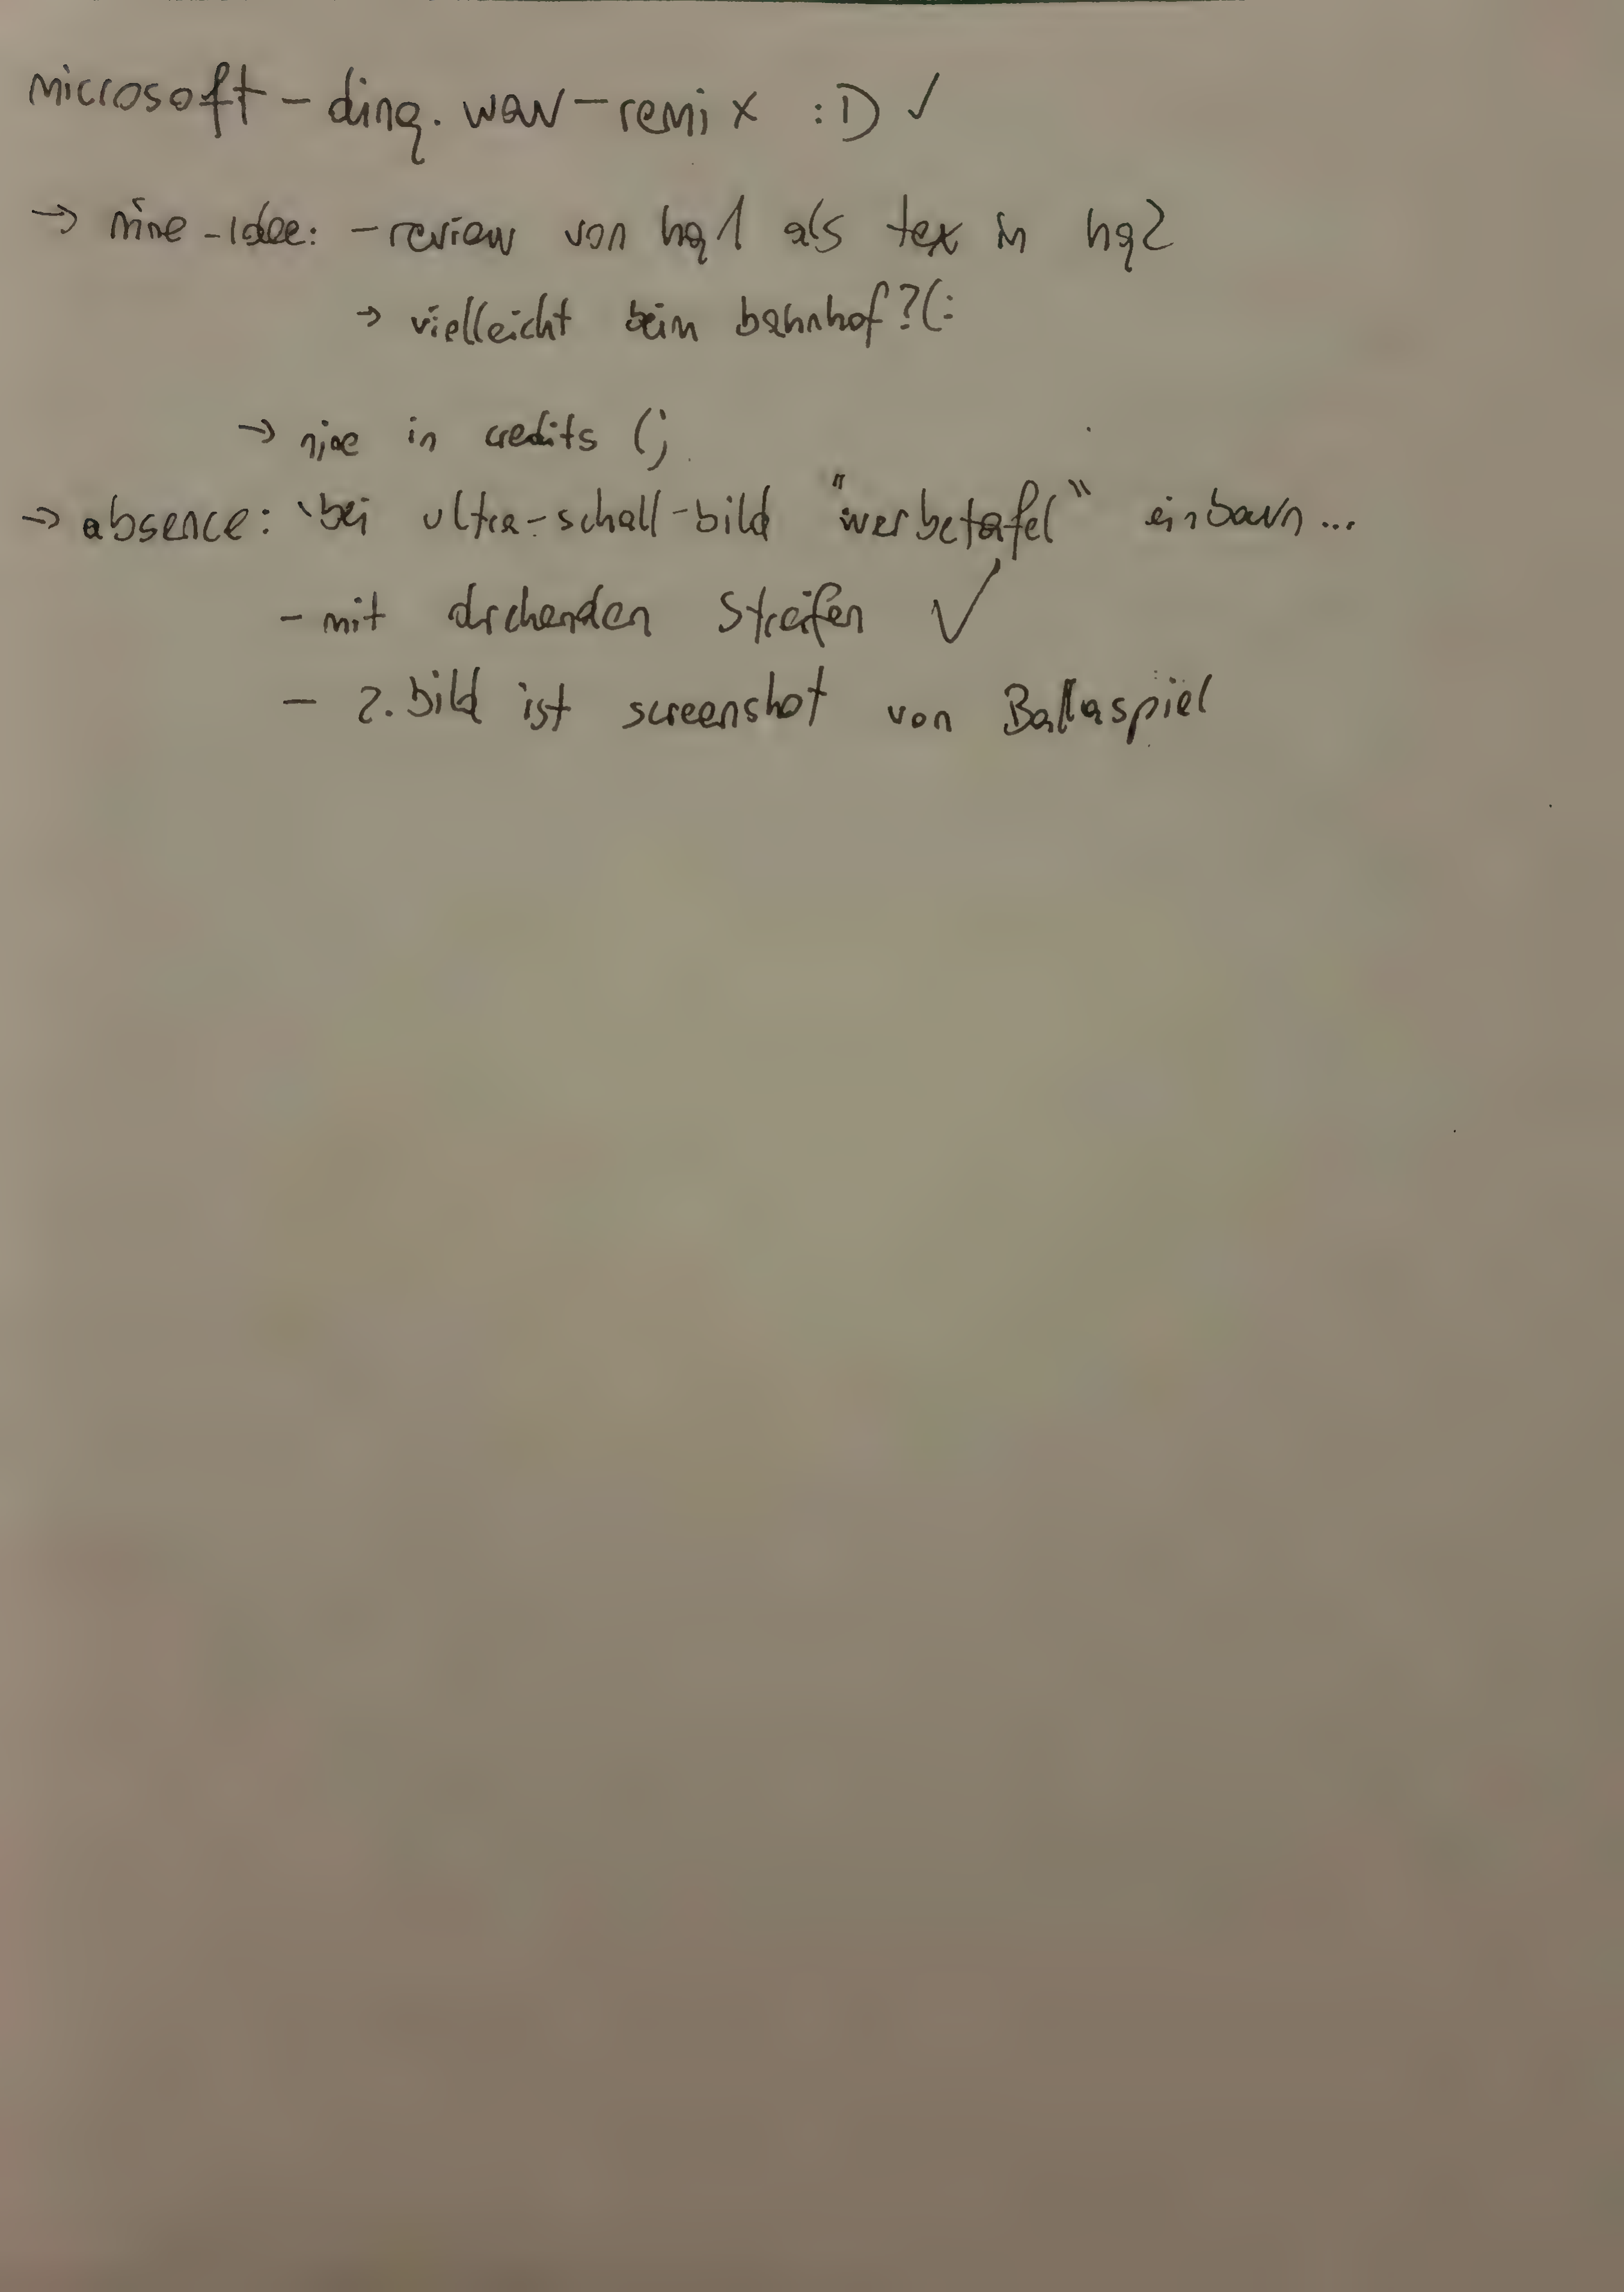 microsoft-ding.wav-remix :D ✓
→ nine-idee: - review von hq1 als tex in hq2
→ vielleicht beim bahnhof?(:
→ nine in credits (;
→ absence: bei ultra-schall-bild "werbetafel" einbaun...
- mit drehenden Streifen ✓
- 2. bild ist screenshot von Ballaspiel